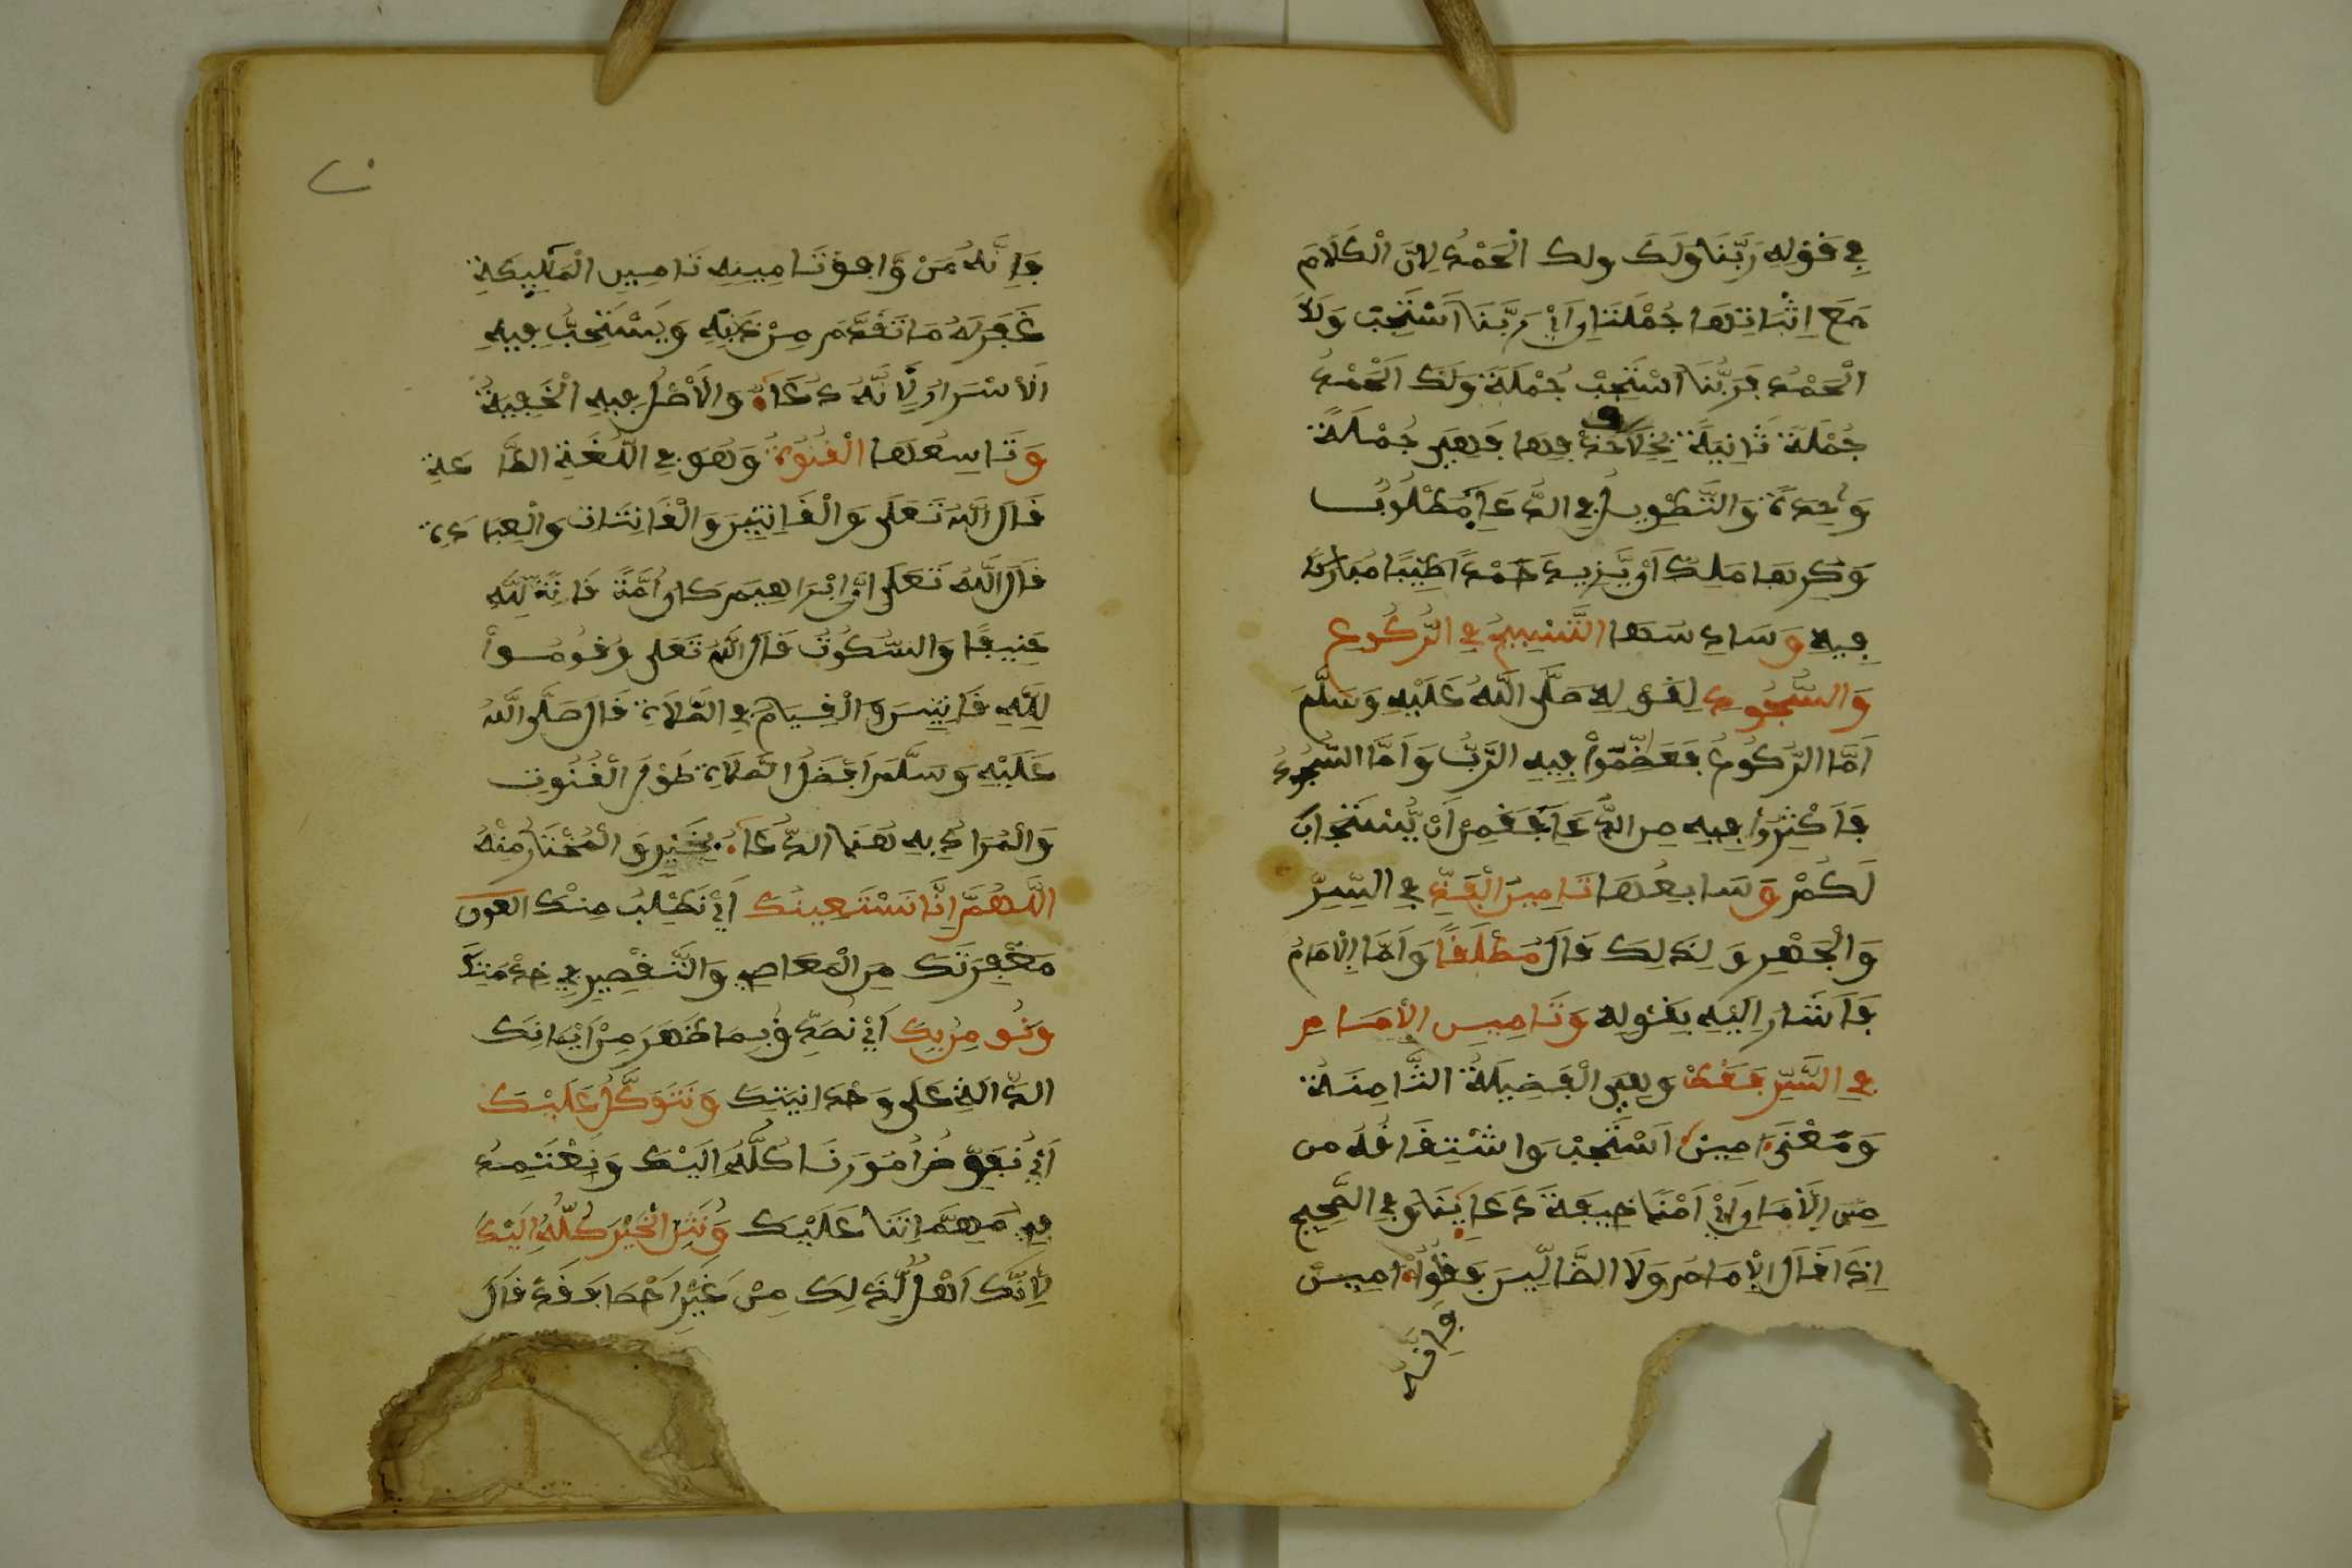 في قَوْلِهِ رَبَّنَا وَلَكَ ولك الْحَمْدُ لِأَنَّ الْكَلَامَ
مَعَ اِثْبَاتِهَا جُمْلَتَانِ أَيْ رَبَّنَا اَسْتَجِبْ وَلَكَ
الْحَمْدُ فَرَبَّنَا اسْتَجِبْ جُمْلَةٌ وَلَكَ الْحَمْدُ
جُمْلَةٌ ثَانِيَةٌ بِخِلَافِ حَذْفِهَا فَهِيَ جُمْلَةٌ
وَاحِدَةٌ وَالتَّطْوِيلُ فِي الدُّعَاءِ مَطْلُوبٌ
وَكَرِهَهَا مَلِكٌ أَوْ يَزِيدَ حَمْدًا طَيِّبًا مُبَارَكًا
فِيهِ وَسَادِسُهَا التَّسْبِيحُ فِي الرُّكُوعِ
وَالسُّجُودِ لِقَوْلِهِ صَلَّى اللَّهُ عَلَيْهِ وَسَلَّمَ
أَمَّا الرُّكُوعُ فَعَظِّمُوا فِيهِ الرَّبَّ وَأَمَّا السُّجُودُ
فَأَكْثِرُوا فِيهِ مِنَ الدُّعَاءِ فَقَمِنٌ أَنْ يُّسْتَجَابَ
لَكُمْ وَسَابِعُهَا تَامِينُ الْفَذِّ فِي السِّرِّ
وَالْجَهْرِ وَلِذَلِكَ قَالَ مُطْلَقًا وَأَمَّا الْإِمَامُ
فَأَشَارَ إِلَيْهِ بِقَوْلِهِ وَتَامِينُ الْإِمَامِ
فِي السِّرِّ فَقَطْ وَهِيَ الْفَضِيلَةُ الثَّامِنَةُ
وَمَعْنَى ءَامِينَ اَسْتَجِبْ وَاشْتِقَاقُهُ من
مِنَ الْأَمَانِ أَيْ أَمْنًا خِيفَةَ دُعَائِنَا وَفِي الصَّحِيحِ
إِذَا قَالَ الْإِمَامُ وَلَا الضَّالِّينَ فَقُولُوا ءَامِينْ
فَإِنَّهُ
فَإِنَّهُ مَنْ وَافَقَ تَامِينُهُ تَامِينَ الْمَلَئِكَةِ
غُفِرَ لَهُ مَا تَقَدَّمَ مِنْ ذَنْبِهِ وَيَسْتَحِبُّ فِيهِ
الْأَسْرَارُ لِأَنَّهُ دُعَاءٌ وَالْأَصْلُ فِيهِ الْخُفْيَةُ
وَتَاسِعُهَا الْقُنُوتُ وَهُوَ فِي اللُّغَةِ الطَّاعَةِ
قَالَ اللَّهُ تَعَلَى وَالْقَانِتِينَ وَالْقَانِتَاتِ وَالْعِبَادَةِ
قَالَ اللَّهُ تَعَلَى إِنَّ إِبْرَاهِيمَ كَانَ أُمَّةً قَانِتًا لِلَّهِ
حَنِيفًا وَالسُّكُوتُ قَالَ اللَّهُ تَعَلَى وَقُومُوا
لِلَّهِ قَانِتِينَ وَالْقِيَامُ فِي الصَّلَاةِ قَالَ صَلَّى اللَّهُ
عَلَيْهِ وَسَلَّمَ أَفْضَلُ الصَّلَاةِ طُولُ الْقُنُوتِ
وَالْمُرَادُ بِهِ هُنَا الدُّعَاءُ بِخَيْرٍ وَالْمُخْتَارُ مِنْهُ
اللَّهُمَّ إِنَّا نَسْتَعِينُكَ أَيْ نَطْلُبُ مِنْكَ العون
مَغْفِرَتَكَ مِنَ الْمَعَاصِي وَالتَّقْصِيرِ فِي خِدْمَتِكَ
وَنُومِنُ بِكَ أَيْ نُصَدِّقُ بِمَا ظَهَرَ مِنْ ءَايَاتِكَ
الدَّالَّةِ عَلَى وَحْدَانِيَتِكَ وَنَتَوَكَّلُ عَلَيْكَ
أَيْ نُفَوِّضُ أُمُورَنَا كُلَّهَا إِلَيْكَ وَنَعْتَمِدُ
فِي مُهِمَّاتِنَا عَلَيْكَ وَنُثْنِي الْخَيْرَ كُلَّهُ إِلَيْكَ
لِأَنَّكَ أَهْلٌ لِّذَلِكَ مِنْ غَيْرِ أَحْصَاءٍ فَقَدْ قَالَ